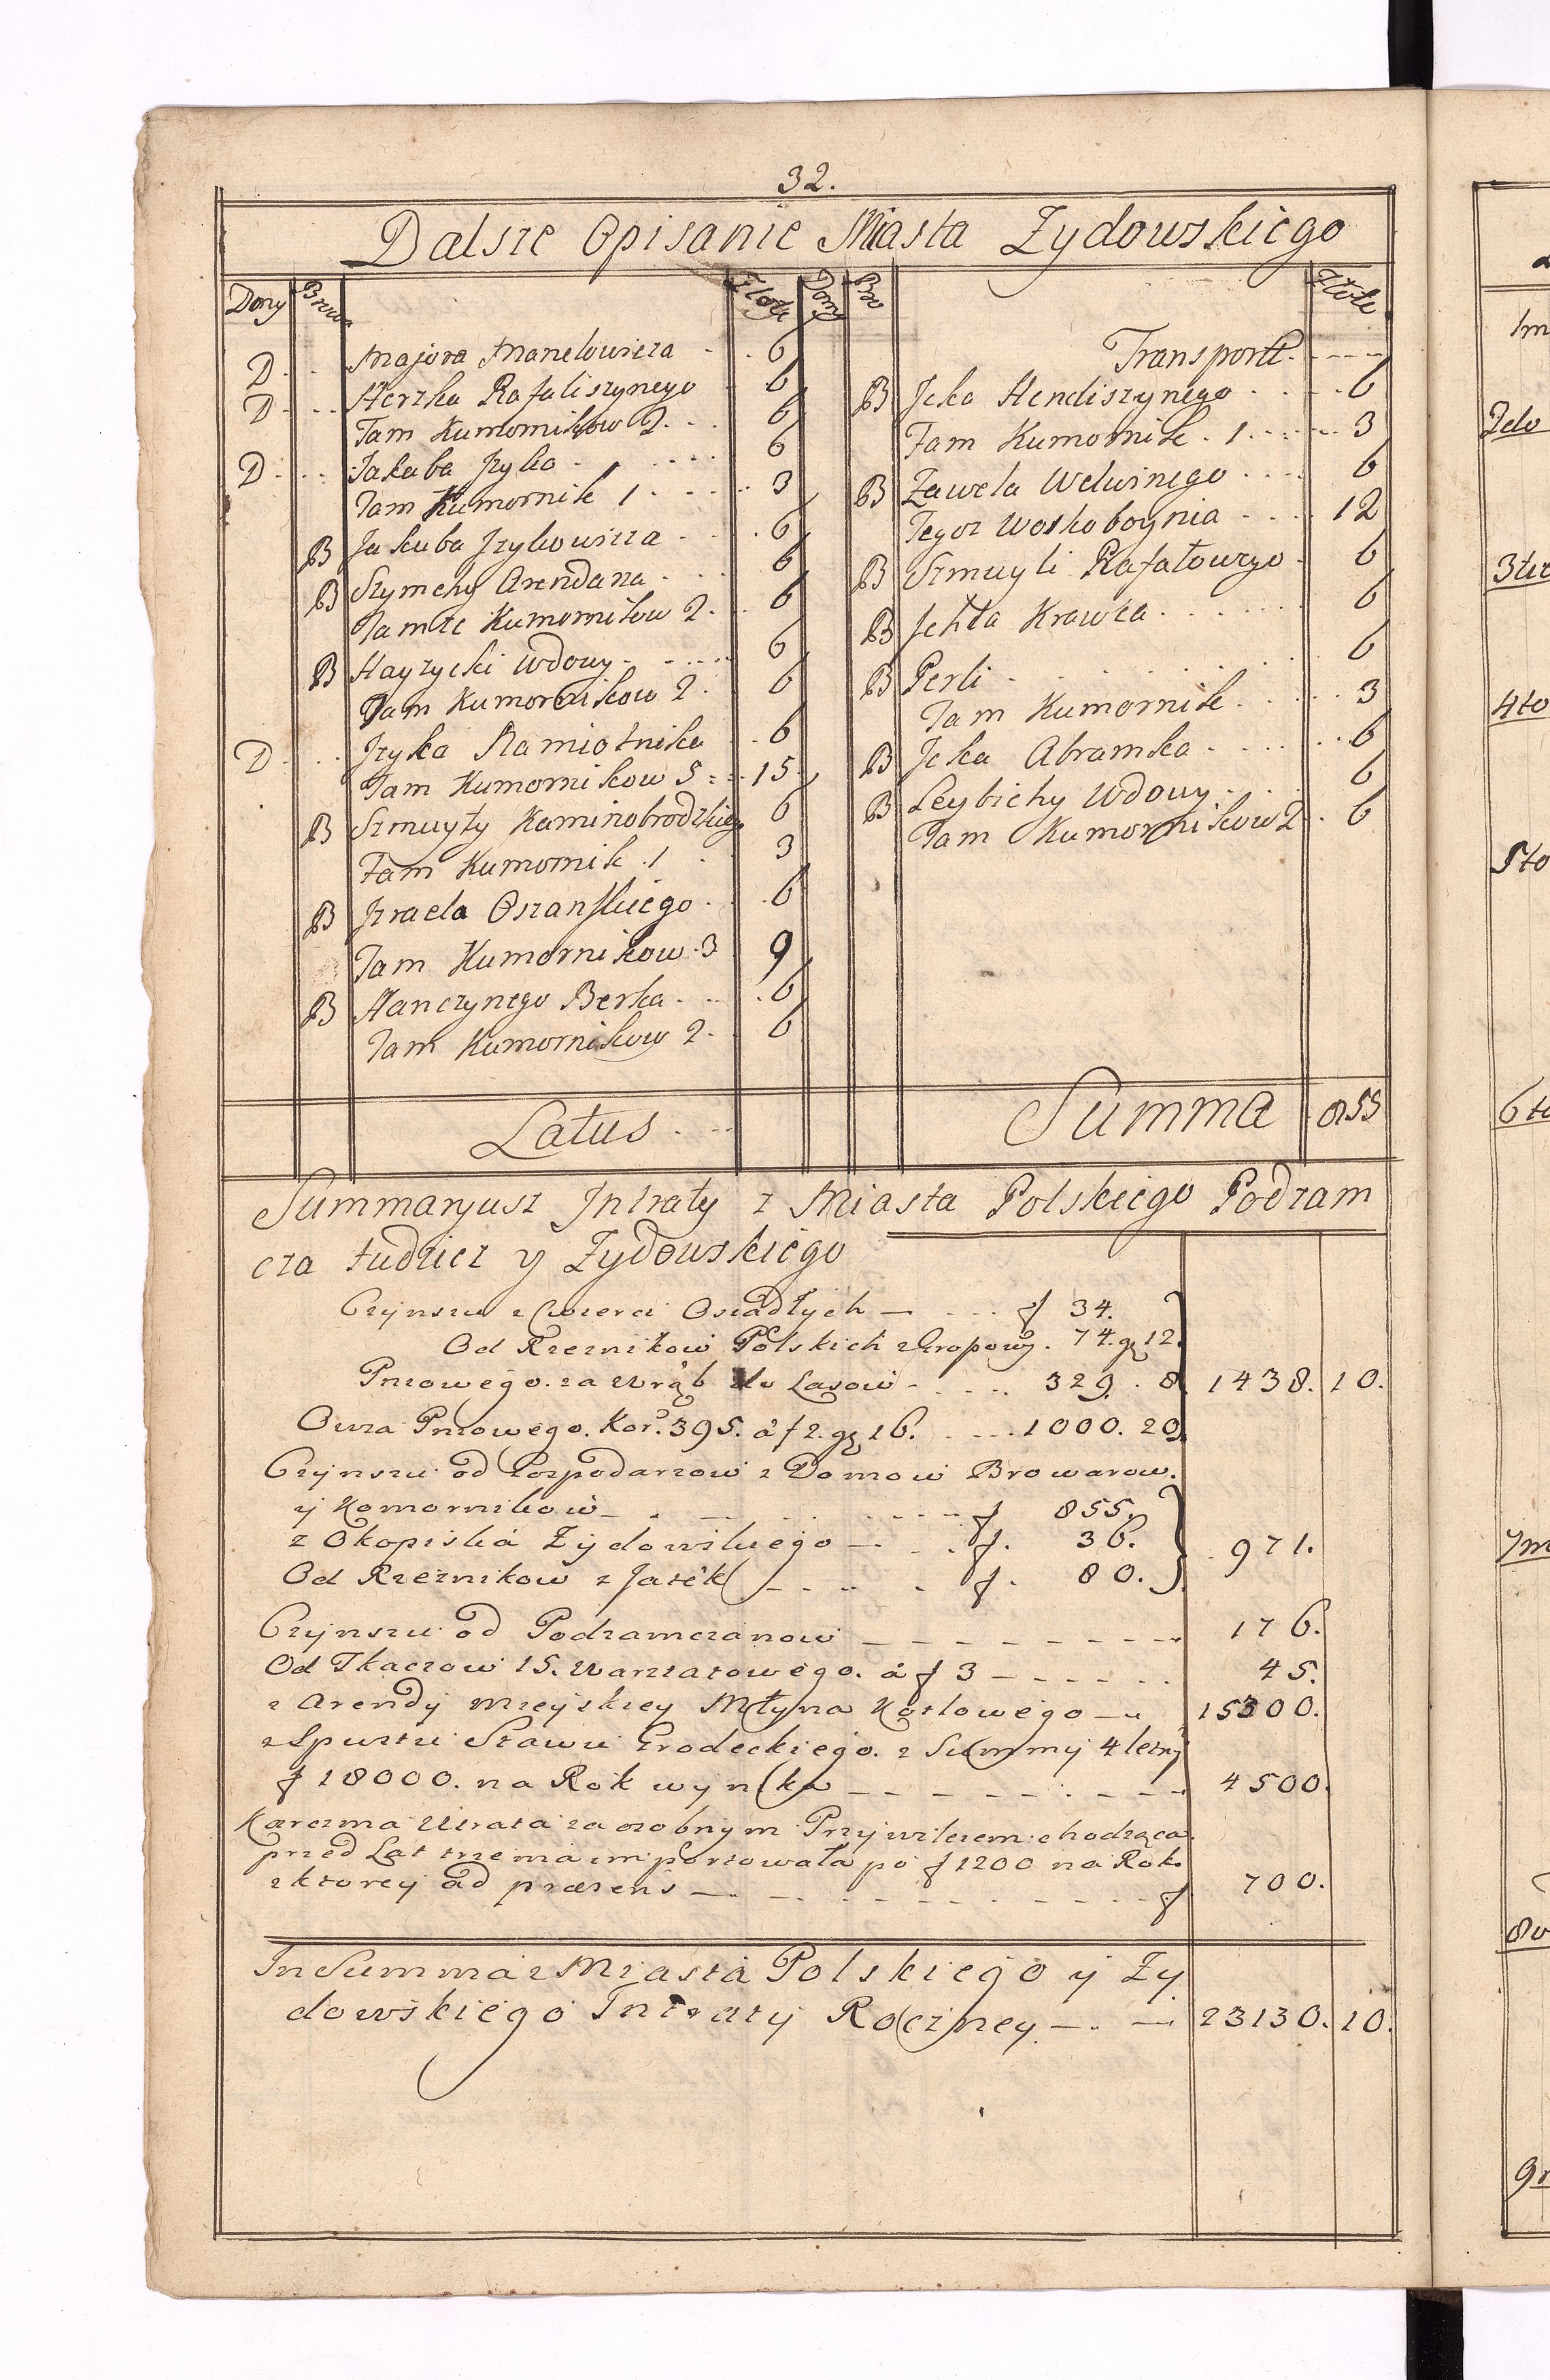 32.
Dalsze Opisanie Miasta Zydowskiego
Domy Brow. Złote Domy Bro Złote
D. . . Majora Manelowicza . . 6
D . . . Herzka Rafaliszynego . 6
Tam Kumornikow 2. . . 6
D . . . Jakuba Jzyka . . . . . 6
Tam Kumornik 1 . . . . . 3
B Jakuba Jzykowicza . . . 6
B Szymchy Arendarza . . . 6
Tamże Kumornikow 2. . . 6
B Hayzycki Wdowy . . . . . 6
Tam Kumornikow 2 . 6
D . . . Jzyka Namiotnika . 6
Tam Kumornikow 5 . . 15
B Szmuyły Kaminobrodzkiego 6
Tam Kumornik . 1 . 3
B Jzraela Oszanskiego . . 6
Tam Kumornikow . 3 9
B Hanczynego Berka . . . 6
Tam Kumornikow 2 . 6
Latus . . .
Transportt . - - - -
B Jcka Hendiszynego . . . . 6
Tam Kumornik . 1 . - - - . 3
B Zawela Welwinego . . . . 6
Tegoz Woskoboynia . . . . 12
B Szmuyli Rafałowego . 6
B Jchła Krawca . . . . . . . 6
B Perli . . . . . . . 6
Tam Kumornik . . . . . 3
B Jcka Abramka . . . . . . . 6
B Leybichy Wdowy . . . . 6
Tam Kumornikow 2 . 6
Summa 855
Summaryusz Jntraty z Miasta Polskiego Podzam
cza tudziez y Zydowskiego
Czynszu z Cwierci Osiadłych — . . . f 34.
Od Rzeznikow Polskich z Kopowy. 74. gr 12.
Pniowego. za Wrąb do Lasow - . . . . 329. 8 1438. 10.
Owsa Pniowego. Kor. 395. á f 2. gr 16. . . . . 1000. 20
Czynszu od Gospodarzow z Domow Browarow.
y Komornikow - . . . . . . . . . f 855.
z Okopiska Zydowskiego — . . . f. 36. 971.
Od Rzeznikow z Jatek — . . . . f. 80.
Czynszu od Podzamczanow — — — — — — — — 176.
Od Tkaczow 15. Warsztatowego. á f 3 — . . . . . . 45.
z Arendy Mieyskiey Młyna Kotłowego — 15300.
z Spustu Stawu Grodeckiego. z Summy 4 letny
f 18000. na Rok wynika — — — — — . — — — 4500.
Karczma Utrata za osobnym Przywilezem chodząca.
przed Lat trzema importowała po f 1200 na Rok
z ktorey ad præsens — . — . — — — — — — f 700.
In Summa z Miasta Polskiego y Zy
dowskiego Intraty Roczney — . — 23130. 10.
1m
2do
3tio
4to
5to
6to
7m
8v
9n